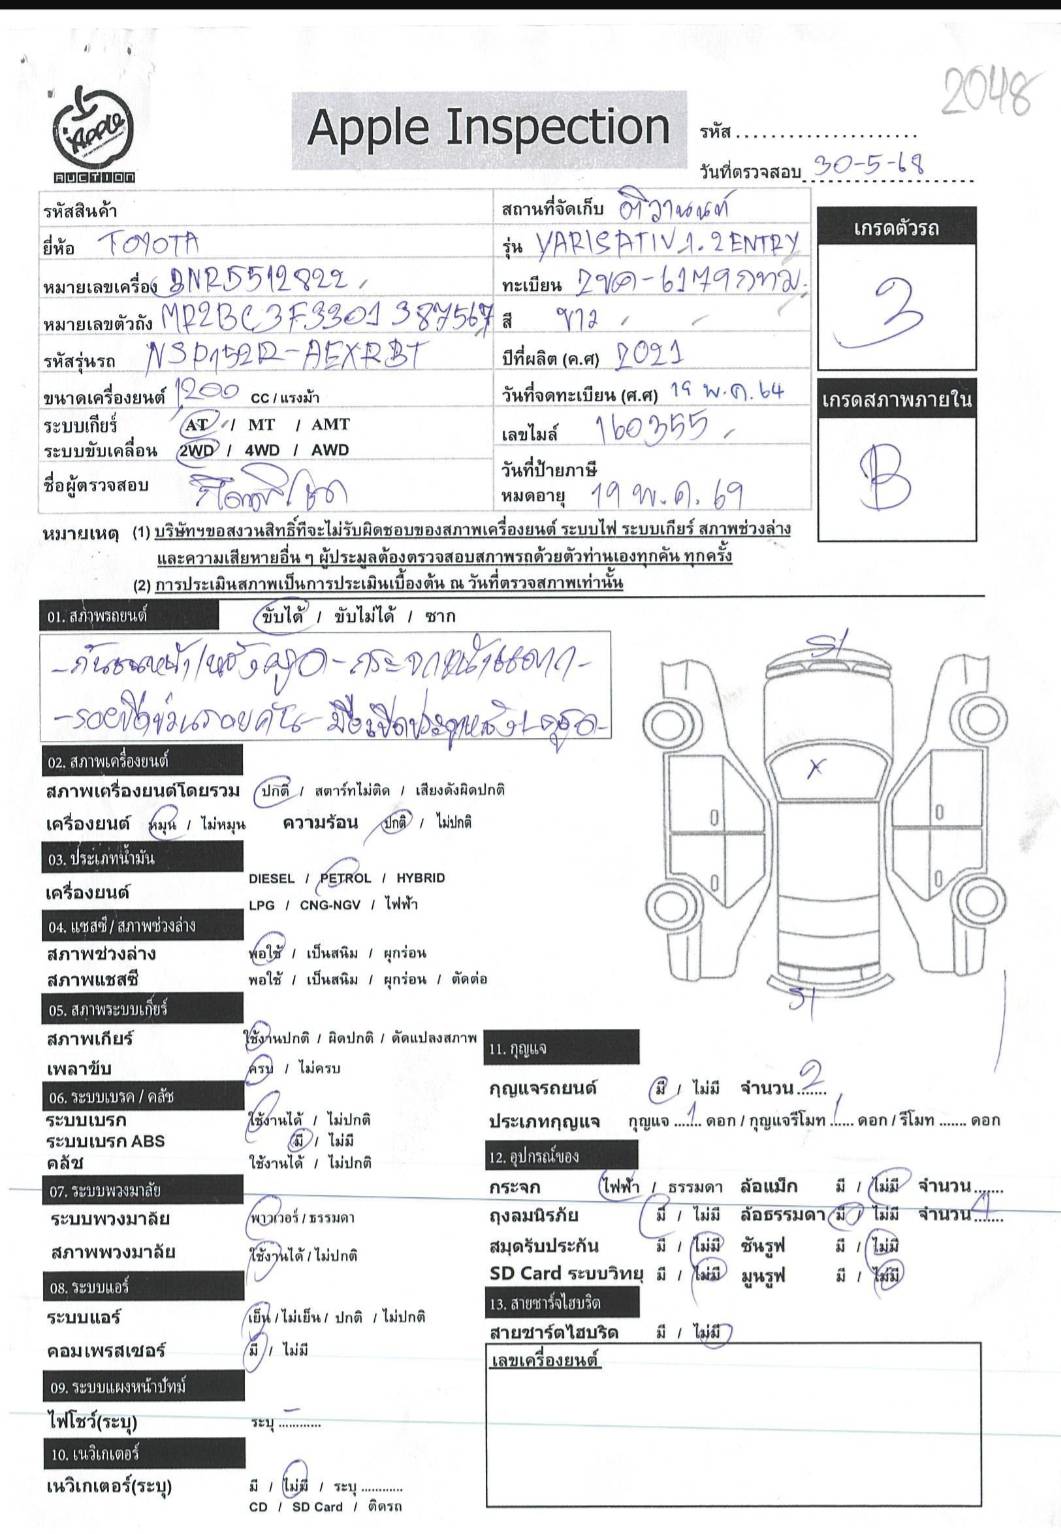 2048
Apple
AUCTION
Apple Inspection
รหัส ....................
วันที่ตรวจสอบ 30-5-68
รหัสสินค้า
สถานที่จัดเก็บ ติวานนท์
ยี่ห้อ TOYOTA
รุ่น YARISATIV 1.2ENTRY
หมายเลขเครื่อง 3NR5512822
ทะเบียน 2ขค-6179กทม.
หมายเลขตัวถัง MR2BC3F3301387567
สี ขาว
รหัสรุ่นรถ NSP152R-AEXRBT
ปีที่ผลิต (ค.ศ) 2021
ขนาดเครื่องยนต์ 1200 CC / แรงม้า
วันที่จดทะเบียน (ศ.ศ) 19 พ.ค. 64
ระบบเกียร์ AT / MT / AMT
เลขไมล์ 160355
ระบบขับเคลื่อน 2WD / 4WD / AWD
ชื่อผู้ตรวจสอบ
วันที่ป้ายภาษี
หมดอายุ 19 พ.ค. 69
เกรดตัวรถ
3
เกรดสภาพภายใน
B
หมายเหตุ (1) บริษัทฯขอสงวนสิทธิ์ที่จะไม่รับผิดชอบของสภาพเครื่องยนต์ ระบบไฟ ระบบเกียร์ สภาพช่วงล่าง
และความเสียหายอื่น ๆ ผู้ประมูลต้องตรวจสอบสภาพรถด้วยตัวท่านเองทุกคัน ทุกครั้ง
(2) การประเมินสภาพเป็นการประเมินเบื้องต้น ณ วันที่ตรวจสภาพเท่านั้น
01. สภาพรถยนต์
ขับได้ / ขับไม่ได้ / ซาก
-กันชนหน้า/หลังครูด -กระจกหน้าแตก-
-รอยขีดข่วนรอบคัน- มือเปิดประตูหลังL
S1
X
S1
02. สภาพเครื่องยนต์
สภาพเครื่องยนต์โดยรวม ปกติ / สตาร์ทไม่ติด / เสียงดังผิดปกติ
เครื่องยนต์ หมุน / ไม่หมุน ความร้อน ปกติ / ไม่ปกติ
03. ประเภทน้ำมัน
เครื่องยนต์ DIESEL / PETROL / HYBRID
LPG / CNG-NGV / ไฟฟ้า
04. แชสซี / สภาพช่วงล่าง
สภาพช่วงล่าง พอใช้ / เป็นสนิม / ผุกร่อน
สภาพแชสซี พอใช้ / เป็นสนิม / ผุกร่อน / ตัดต่อ
05. สภาพระบบเกียร์
สภาพเกียร์ ใช้งานปกติ / ผิดปกติ / ดัดแปลงสภาพ
เพลาขับ ครบ / ไม่ครบ
06. ระบบเบรค / คลัช
ระบบเบรก ใช้งานได้ / ไม่ปกติ
ระบบเบรก ABS มี / ไม่มี
คลัช ใช้งานได้ / ไม่ปกติ
07. ระบบพวงมาลัย
ระบบพวงมาลัย พาวเวอร์ / ธรรมดา
สภาพพวงมาลัย ใช้งานได้ / ไม่ปกติ
08. ระบบแอร์
ระบบแอร์ เย็น / ไม่เย็น / ปกติ / ไม่ปกติ
คอมเพรสเซอร์ มี / ไม่มี
09. ระบบแผงหน้าปัทม์
ไฟโชว์(ระบุ) ระบุ ............
10. เนวิเกเตอร์
เนวิเกเตอร์(ระบุ) มี / ไม่มี / ระบุ ............
CD / SD Card / ติดรถ
11. กุญแจ
กุญแจรถยนต์ มี / ไม่มี จำนวน 2
ประเภทกุญแจ กุญแจ 1 ดอก / กุญแจรีโมท 1 ดอก / รีโมท ....... ดอก
12. อุปกรณ์ของ
กระจก ไฟฟ้า / ธรรมดา ล้อแม็ก มี / ไม่มี จำนวน.......
ถุงลมนิรภัย มี / ไม่มี ล้อธรรมดา มี / ไม่มี จำนวน 4
สมุดรับประกัน มี / ไม่มี ซันรูฟ มี / ไม่มี
SD Card ระบบวิทยุ มี / ไม่มี มูนรูฟ มี / ไม่มี
13. สายชาร์จไฮบริด
สายชาร์ตไฮบริด มี / ไม่มี
เลขเครื่องยนต์